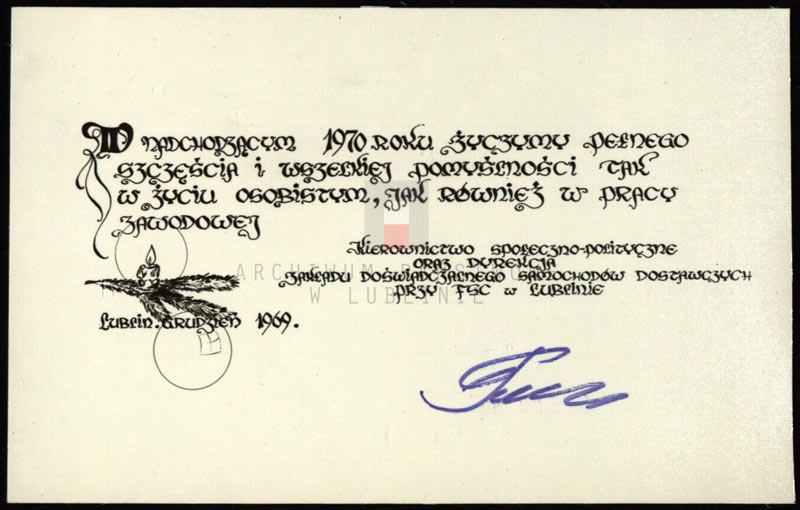 W NADCHODZĄCYM 1970 ROKU ŻYCZYMY PEŁNEGO
SZCZĘŚCIA i WSZELKIEJ POMYŚLNOŚCI TAK
W ŻYCIU OSOBISTYM, JAK RÓWNIEŻ W PRACY
ZAWODOWEJ
KIEROWNICTWO SPOŁECZNO-POLITYCZNE
ORAZ DYREKCJA
ZAKŁADU DOŚWIADCZALNEGO SAMOCHODÓW DOSTAWCZYCH
PRZY FSC W LUBLINIE
ARCHIWUM
W LUBLINIE
LUBLIN. GRUDZIEŃ 1969.